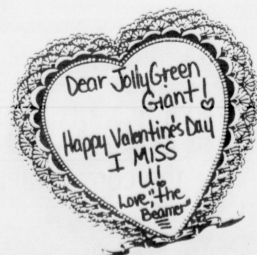 Dear Jolly Green
Giant!
Happy Valentine's Day
I MISS
U!
Love, "the
Beamer"